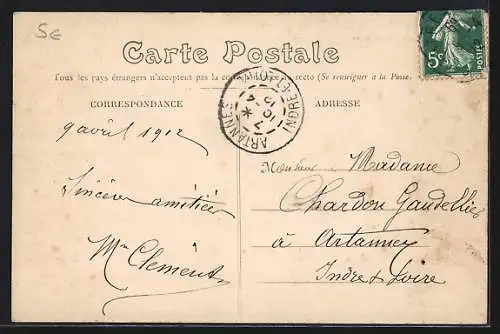 5€
Carte Postale
Tous les pays étrangers n'acceptent pas la correspondance au recto (Se renseigner à la Poste
CORRESPONDANCE
ADRESSE
5c
POSTES
ARTANNES
INDRE-ET-
9 avril 1912
Sincères amitiés
Mme Clément
Monsieur Madame
Chardon Gaudellier
à Artannes
Indre & Loire